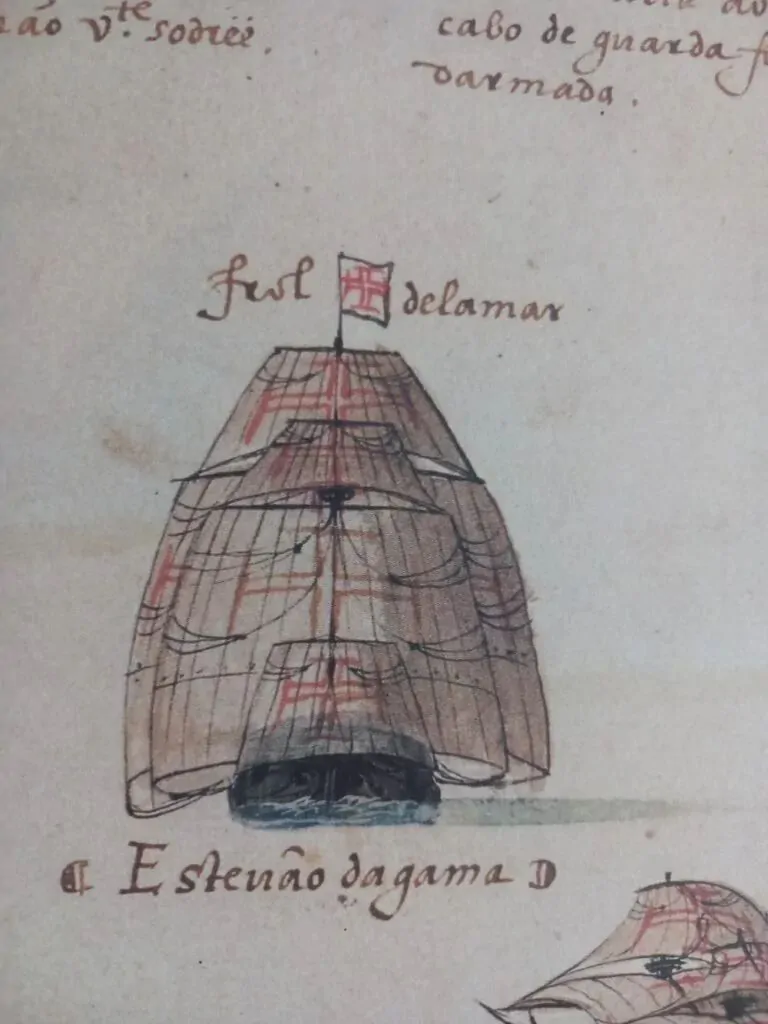 vᵗᵉ. sodrëë.
cabo de guarda
darmada.
frol delamar
Esteuão dagama